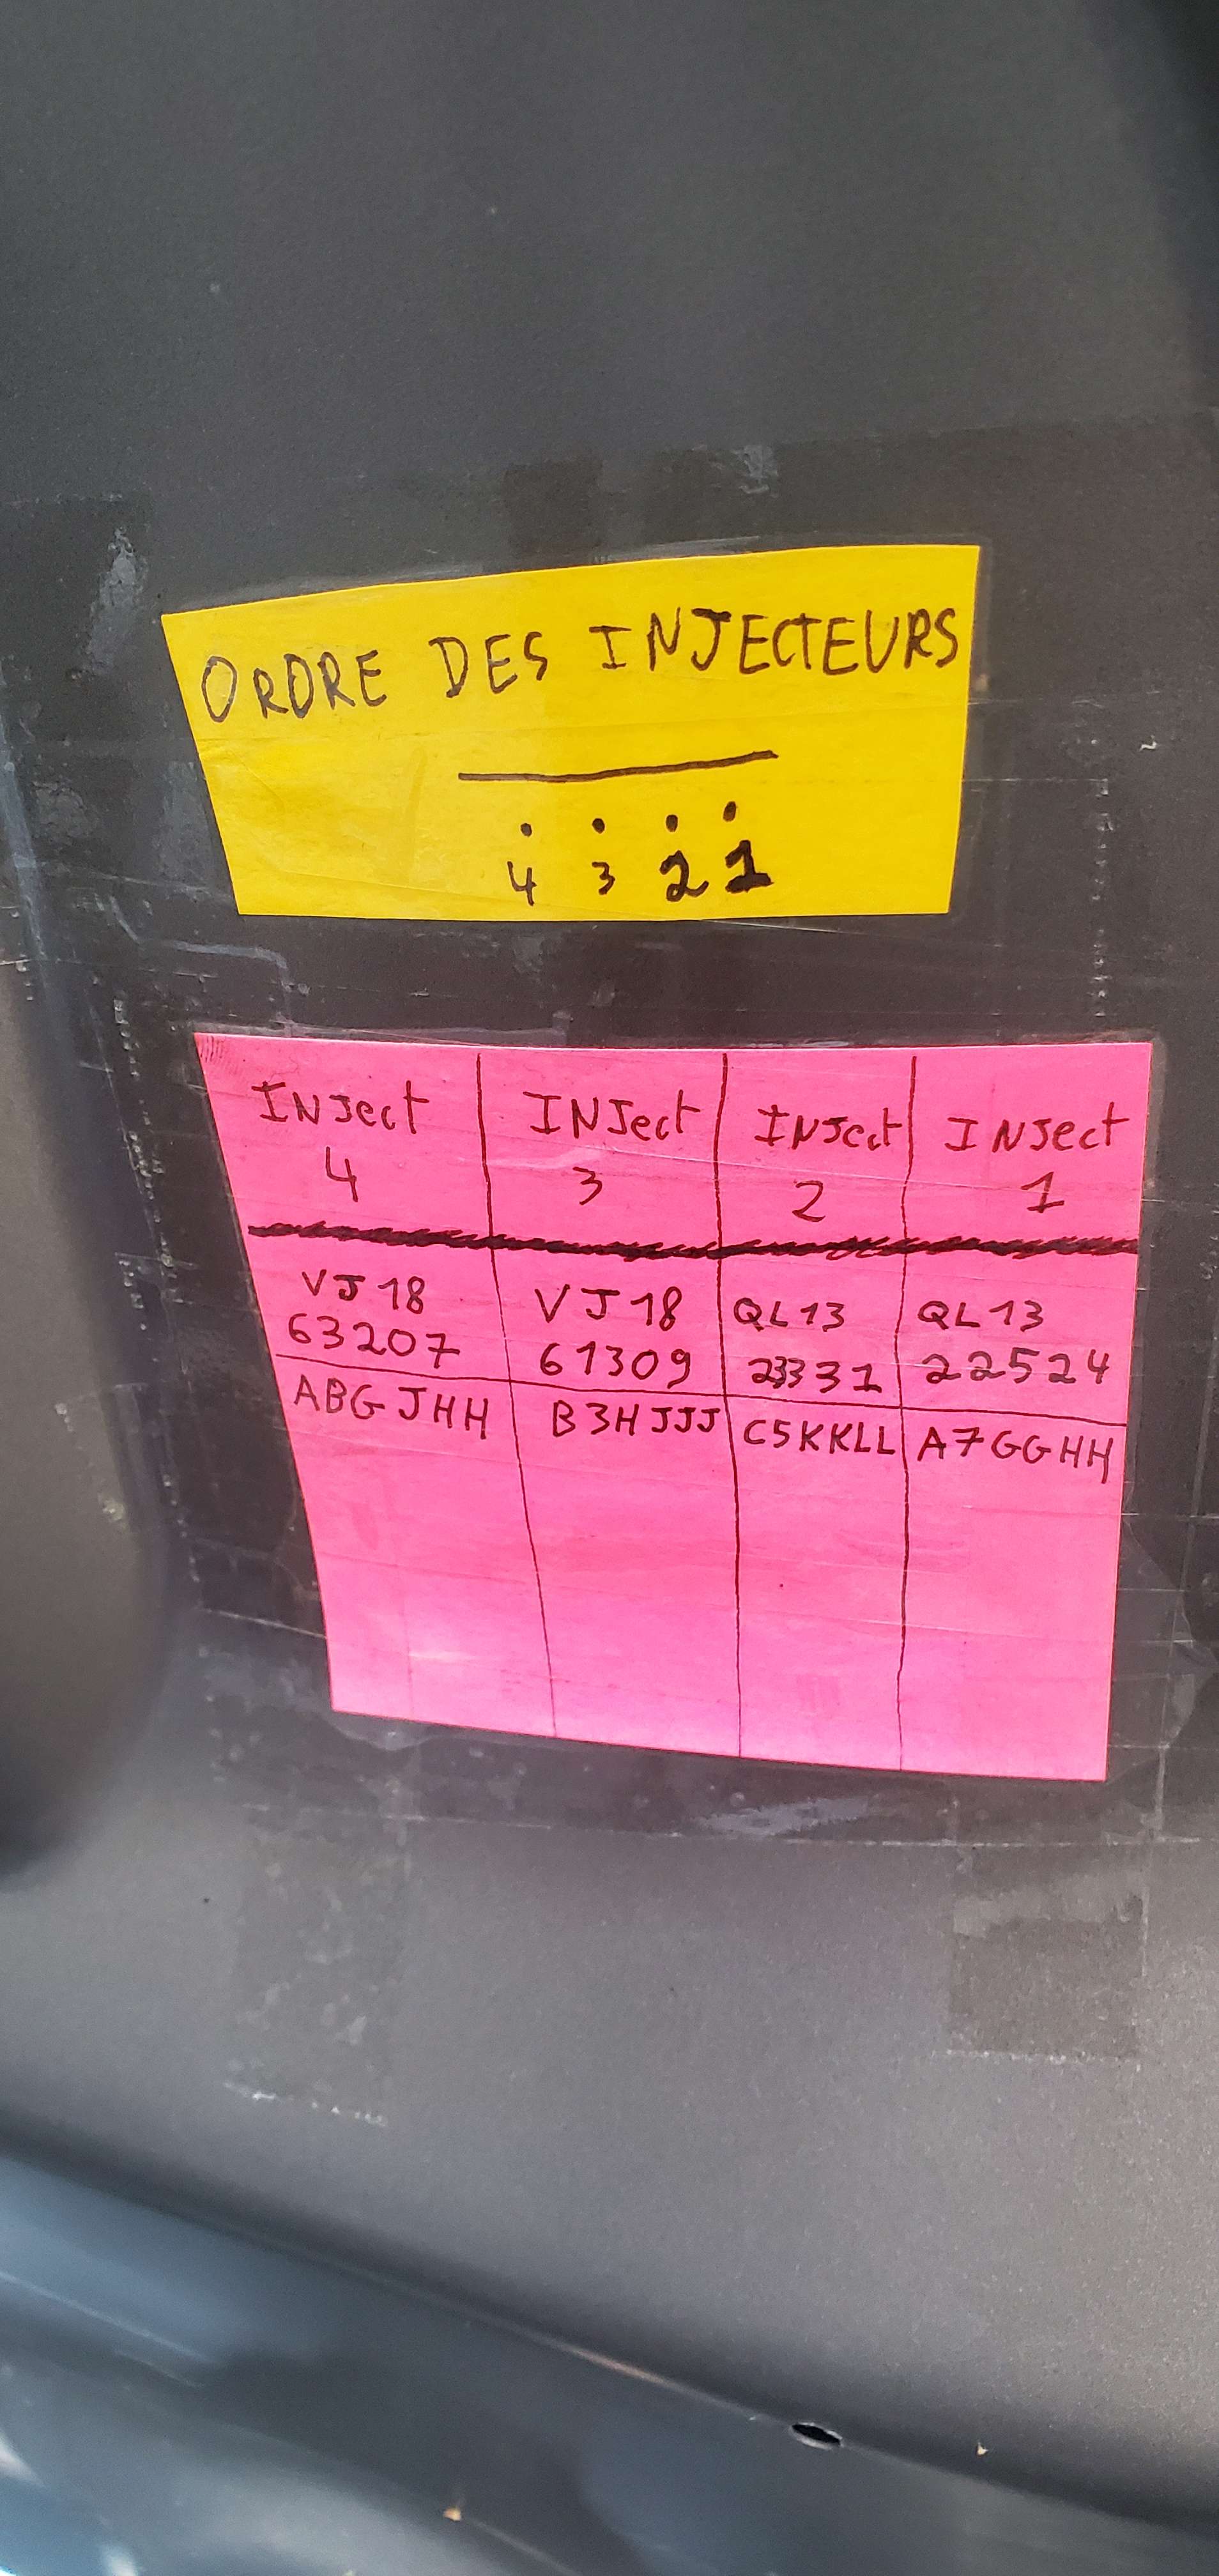 ORDRE DES INJECTEURS
4 3 2 1
INJect INJect INJect INJect
4 3 2 1
VJ18 VJ18 QL13 QL13
63207 61309 23331 22524
ABGJHH B3HJJJ C5KKLL A7GGHH